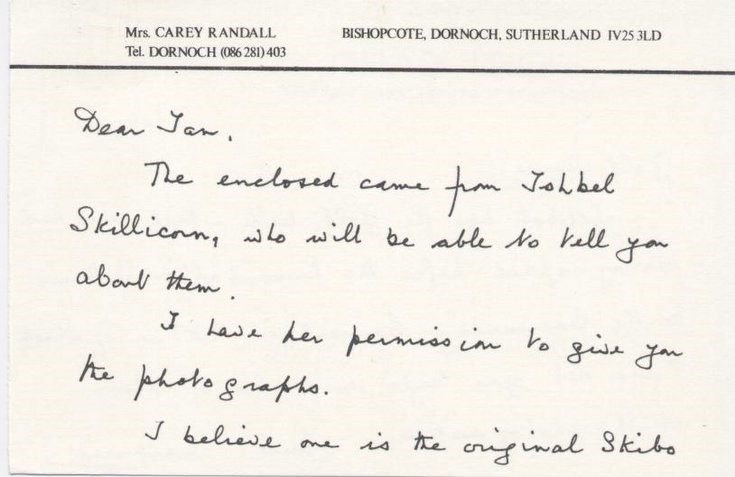 Mrs. CAREY RANDALL
Tel. DORNOCH (086 281) 403
BISHOPCOTE, DORNOCH, SUTHERLAND IV25 3LD
Dear Ian,
The enclosed came from Ishbel
Skillicorn, who will be able to tell you
about them.
I have her permission to give you
the photographs.
I believe one is the original Skibo